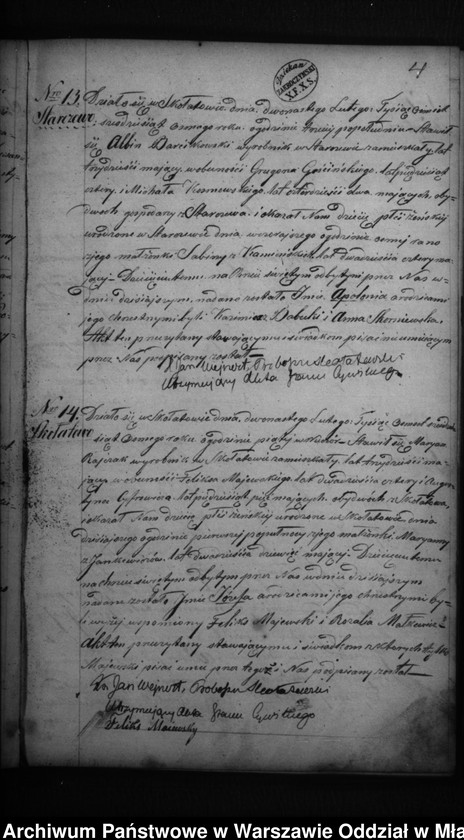 4
Nro 13.
Działo się w Skołatowie dnia dwunastego Lutego Tysiąc ośmset
Starczewo sześćdziesiąt ósmego roku o godzinie trzeciej popołudniu Stawił
się Albin wyrobnik w Starczewie zamieszkały lat
trzydzieści mający, w obecności Grzegorza lat pięćdziesiąt
cztery, i Michała lat czterdzieści dwa mających, oby-
dwóch z Starczewa, i okazał Nam dziecię płci żeńskiej
urodzone w Starczewie dnia wczorajszego o godzinie ósmej rano
z jego małżonki Sabiny z Kamińskich, lat dwadzieścia cztery ma-
jącej. Dziecięciu temu na Chrzcie świętym odbytym przez Nas w
dniu dzisiejszym, nadane zostało Imie Apolonia a rodzicami
jego chrzestnymi byli Kazimierz i Anna
Akt ten przeczytany stawającemu i świadkom pisać nieumiejącym
przez Nas podpisany został
X. Jan Wejnert, Proboszcz Skołatowski
Utrzymujący Akta Stanu Cywilnego
Nro 14.
Działo się w Skołatowie dnia dwunastego Lutego Tysiąc ośmset sześćdzie-
Skołatowo siąt ósmego roku o godzinie piątej wieczór Stawił się
wyrobnik w Skołatowie zamieszkały, lat trzydzieści ma-
jący, w obecności Feliksa Majewskiego, lat dwadzieścia cztery i
lat pięćdziesiąt pięć mających, obydwóch z Skołatowa,
i okazał Nam dziecię płci żeńskiej urodzone w Skołatowie dnia
dzisiejszego o godzinie pierwszej popołudniu z jego małżonki Maryanny
z lat dwadzieścia dziewięć mającej. Dziecięciu temu
na chrzcie świętym odbytym przez Nas w dniu dzisiejszym
nadane zostało Imie Józefa a rodzicami jego chrzestnymi by-
li wyżej wspomniony Feliks Majewski i Rozalia
Akt ten przeczytany stawającemu i świadkom z których tylko
Majewski pisać umie przez tegoż i Nas podpisany został
X. Jan Wejnert, Proboszcz Skołatowski
Utrzymujący Akta Stanu Cywilnego
Feliks Majewsky
Archiwum Państwowe w Warszawie Oddział w Mła